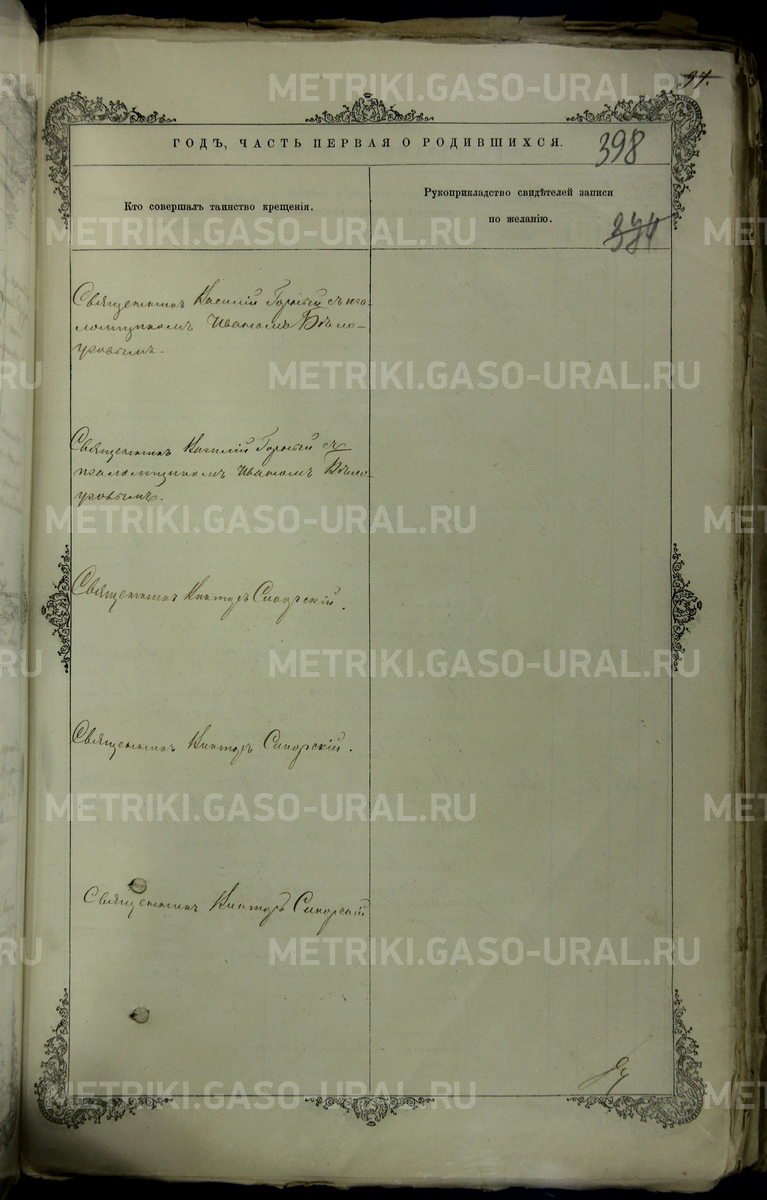 94.
ГОДЪ, ЧАСТЬ ПЕРВАЯ О РОДИВШИХСЯ.
398
Кто совершалъ таинство крещенія.
Рукоприкладство свидѣтелей записи
по желанію.
Священникъ Василій Горный съ пса-
ломщикомъ Иваномъ Бѣло-
усовымъ.
Священникъ Василій Горный съ
псаломщикомъ Иваномъ Бѣло-
усовымъ.
Священникъ Викторъ
Священникъ Викторъ
Священникъ Викторъ
METRIKI.GASO-URAL.RU